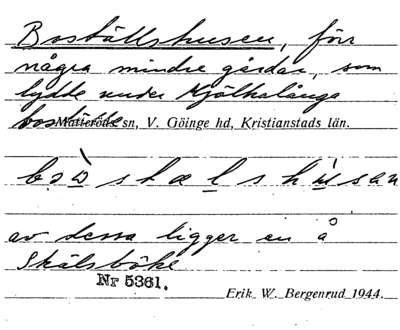 Boställshusen, förr
några mindre gårdar, som
lydde under Kjölkalånga
boställe
Matteröds sn, V. Göinge hd, Kristianstads län.
av dessa ligger en å
Skälsböke
Nr 5361.
Erik W. Bergenrud 1944.